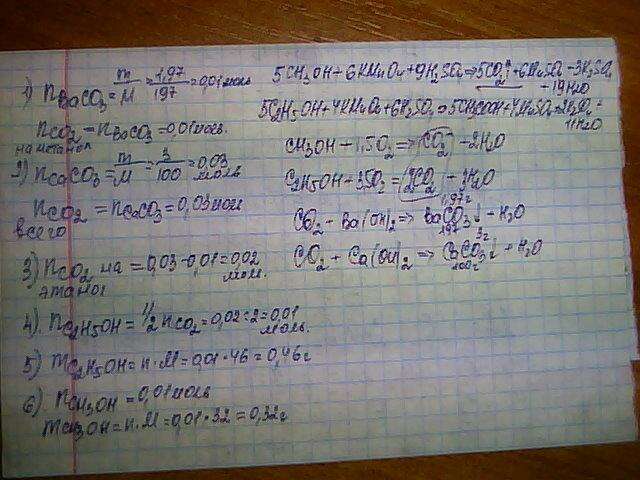 1) nBaCO₃ = m/M = 1,97/197 = 0,01 моль
nCO₂ = nBaCO₃ = 0,01 моль.
на метанол
2) nCaCO₃ = m/M = 3/100 = 0,03 моль
nCO₂ = nCaCO₃ = 0,03 моль
всего
3) nCO₂ на этанол = 0,03-0,01 = 0,02 моль.
4). nC₂H₅OH = 1/2 nCO₂ = 0,02:2 = 0,01 моль.
5) mC₂H₅OH = n·M = 0,01·46 = 0,46г
6). nCH₃OH = 0,01 моль
mCH₃OH = n·M = 0,01·32 = 0,32г
5CH₃OH + 6KMnO₄ + 9H₂SO₄ => 5CO₂↑ + 6MnSO₄ + 3K₂SO₄ + 19H₂O
5C₂H₅OH + 4KMnO₄ + 6H₂SO₄ => 5CH₃COOH + 4MnSO₄ + 2K₂SO₄ + 11H₂O
CH₃OH + 1,5O₂ => CO₂ + 2H₂O
C₂H₅OH + 3O₂ = 2CO₂ + 3H₂O
1,97г
CO₂ + Ba(OH)₂ => BaCO₃↓ + H₂O
197
3г
CO₂ + Ca(OH)₂ => CaCO₃↓ + H₂O
100г